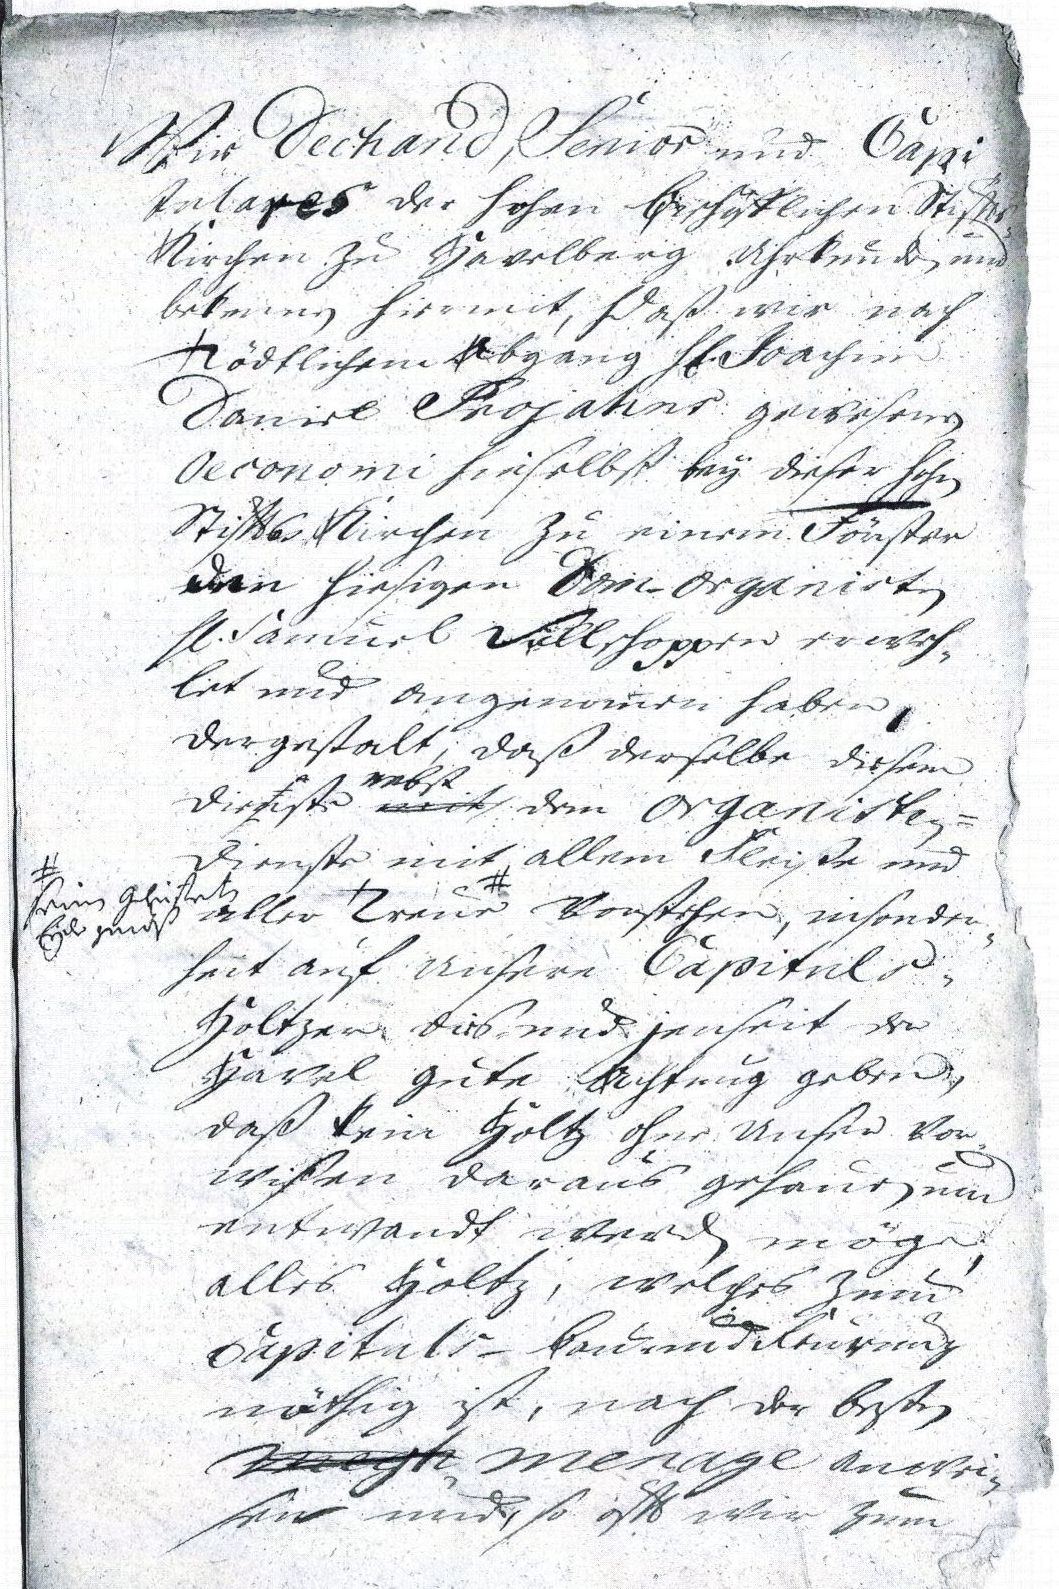 Wir Dechand, Senior und Capi-
tulares der hohen Bischöfflichen Stiffts-
Kirchen zu Havelberg Uhrkunden und
bekennen hiermit, daß wir nach
tödtlichem Abgang H. Joachim
Daniel gewesenen
Oeconomi hieselbst bey dieser hohen
Stiffts Kirchen zu einem Förster
den hiesigen Dom-Organisten
H. Samuel erweh-
let und angenommen haben,
dergestalt, daß derselbe diesem
Dienste nebst dem Organisten-
Dienste mit allem Fleiße und
aller Treue # vorstehen, insonder-
heit auf unsere Capituls-
Höltzer dis- und jenseit der
Havel gute Achtung geben,
daß kein Holtz ohne unser Vor-
wißen daraus gehauen und
entwandt werden möge,
alles Holtz, welches zum
Capituls- Bau und Feurung
nöthig ist, nach der besten
menage anwei-
sen und, so offt wir zum
# seinem geleisteten
Eyde gemäß